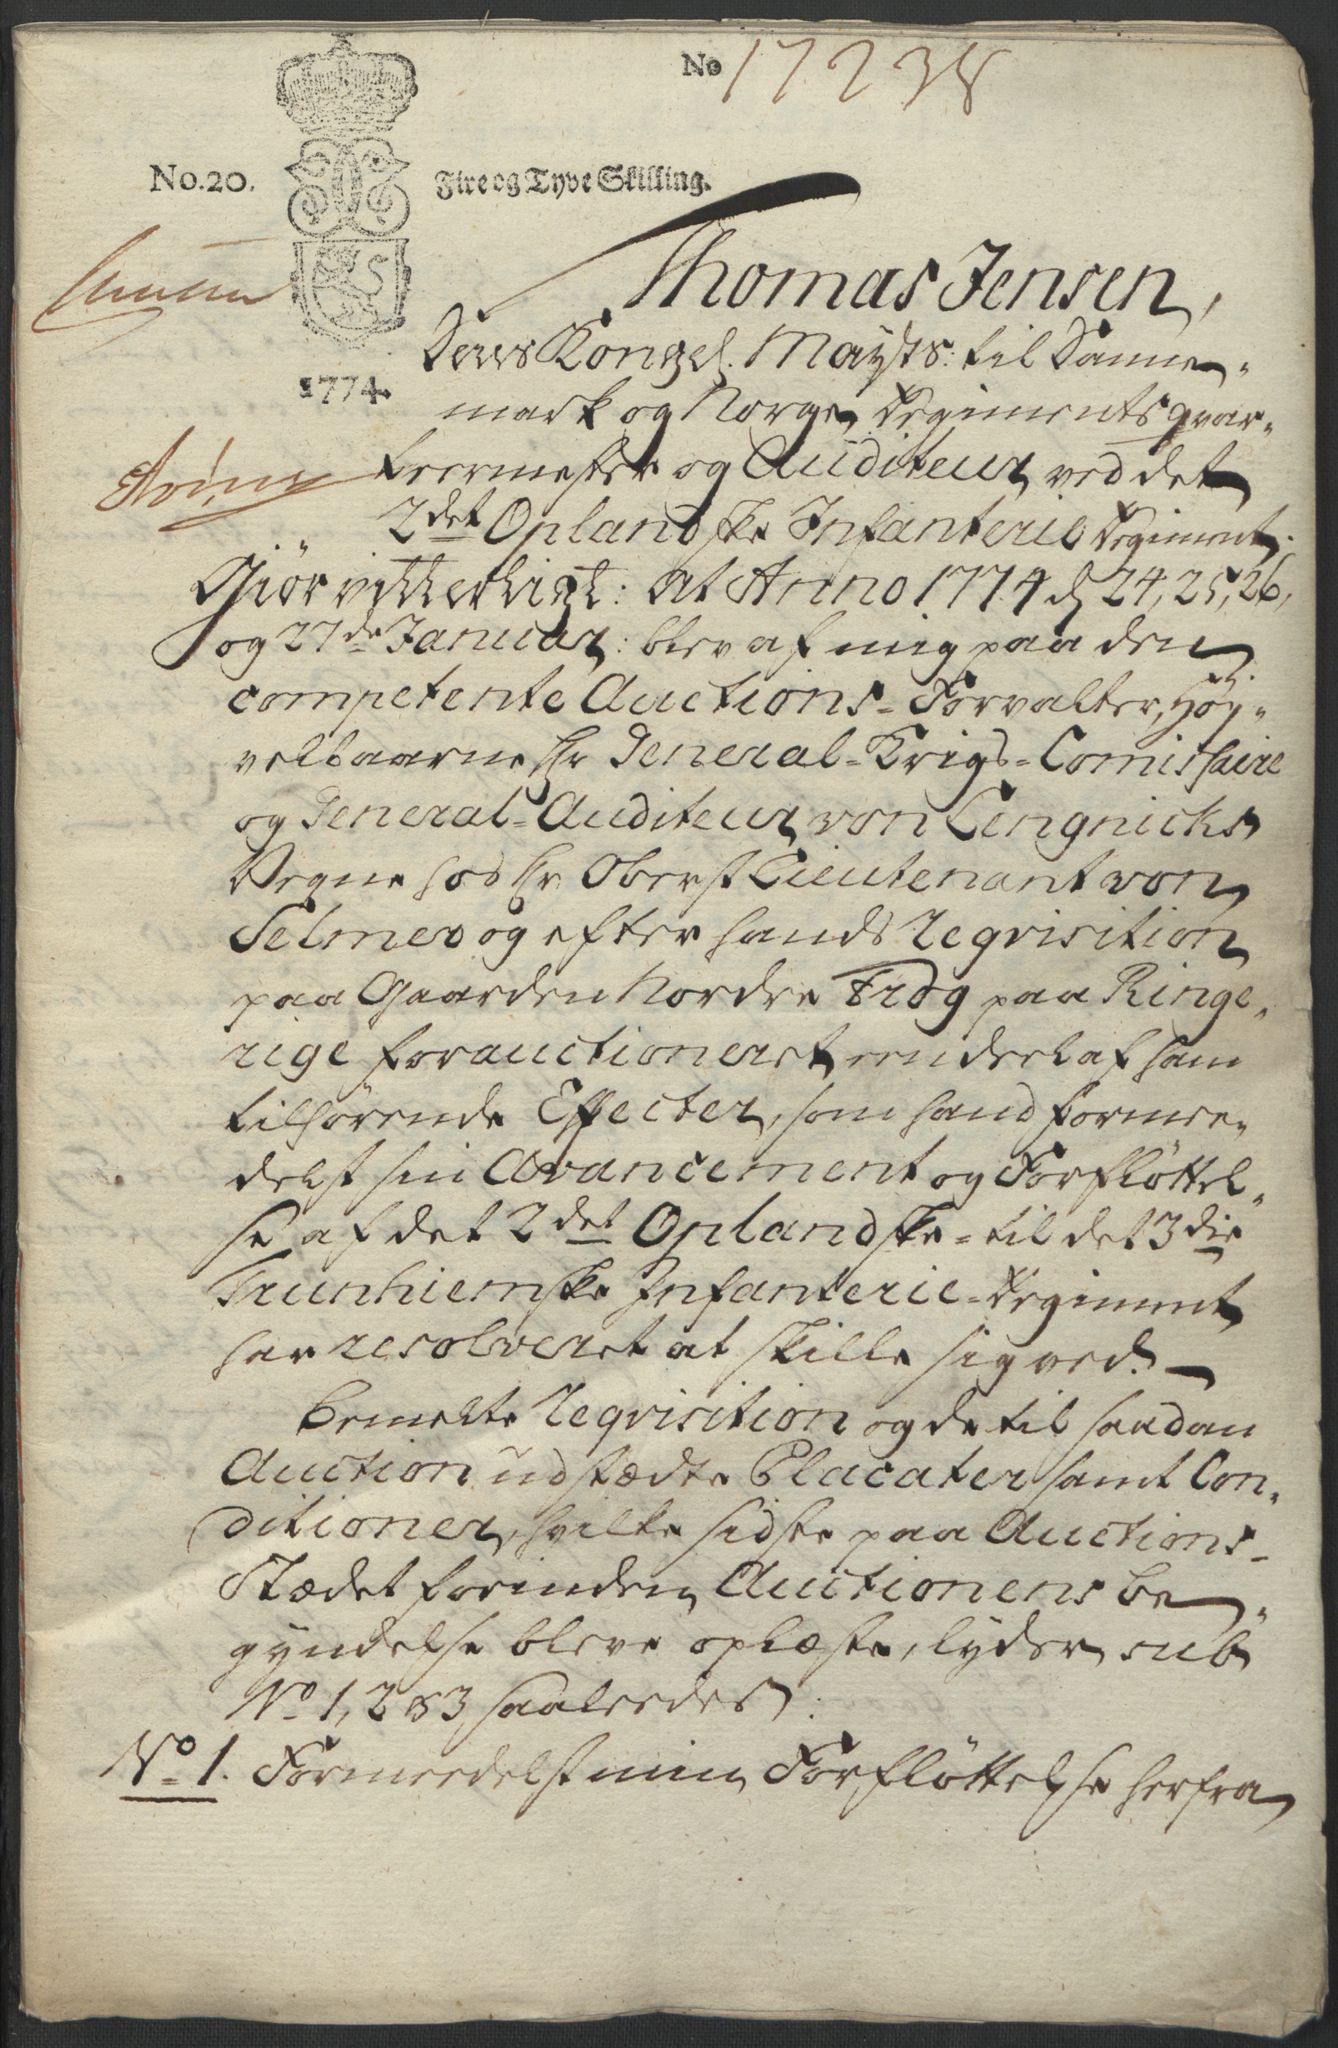 No 17238
No. 20. Fire og Tyve Skilling.
1774.
Thomas Jensen,
Deres Kongel. Mayts: til Danne-
mark og Norge, Regimentsqvar-
teermester og Auditeur ved det
2det Oplandske Infanterie Regiment.
Giör vitterligt: at Anno 1774 d 24, 25, 26,
og 27de Januar: blev af mig paa den
competente Auctions-Forvalter, Höy-
velbaarne Hr General-Krigs-Comissaire
og General-Auditeur von Lengnicks
Vegne hos Hr Oberst Lieutenant von
Selmer og efter hands Reqvisition
paa Gaarden Nordre Frög paa Ringe-
rige forauctioneret eendeel af ham
tilhørende Effecter, som hand formee-
delst sin Avancement og Forfløttel-
se af det 2det Oplandske- til det 3die
Trunhiemske Infanterie-Regiment
har resolveret at skille sig ved.
Bemelte Reqvisition og de til saadan
Auction udstædte Placater samt Con-
ditioner, hvilke sidste paa Auctions-
Stædet forinden Auctionens be-
gyndelse bleve oplæste, lyder sub
No 1, 2 & 3 saaleedes:
No 1. Formeedelst min Forfløttelse herfra